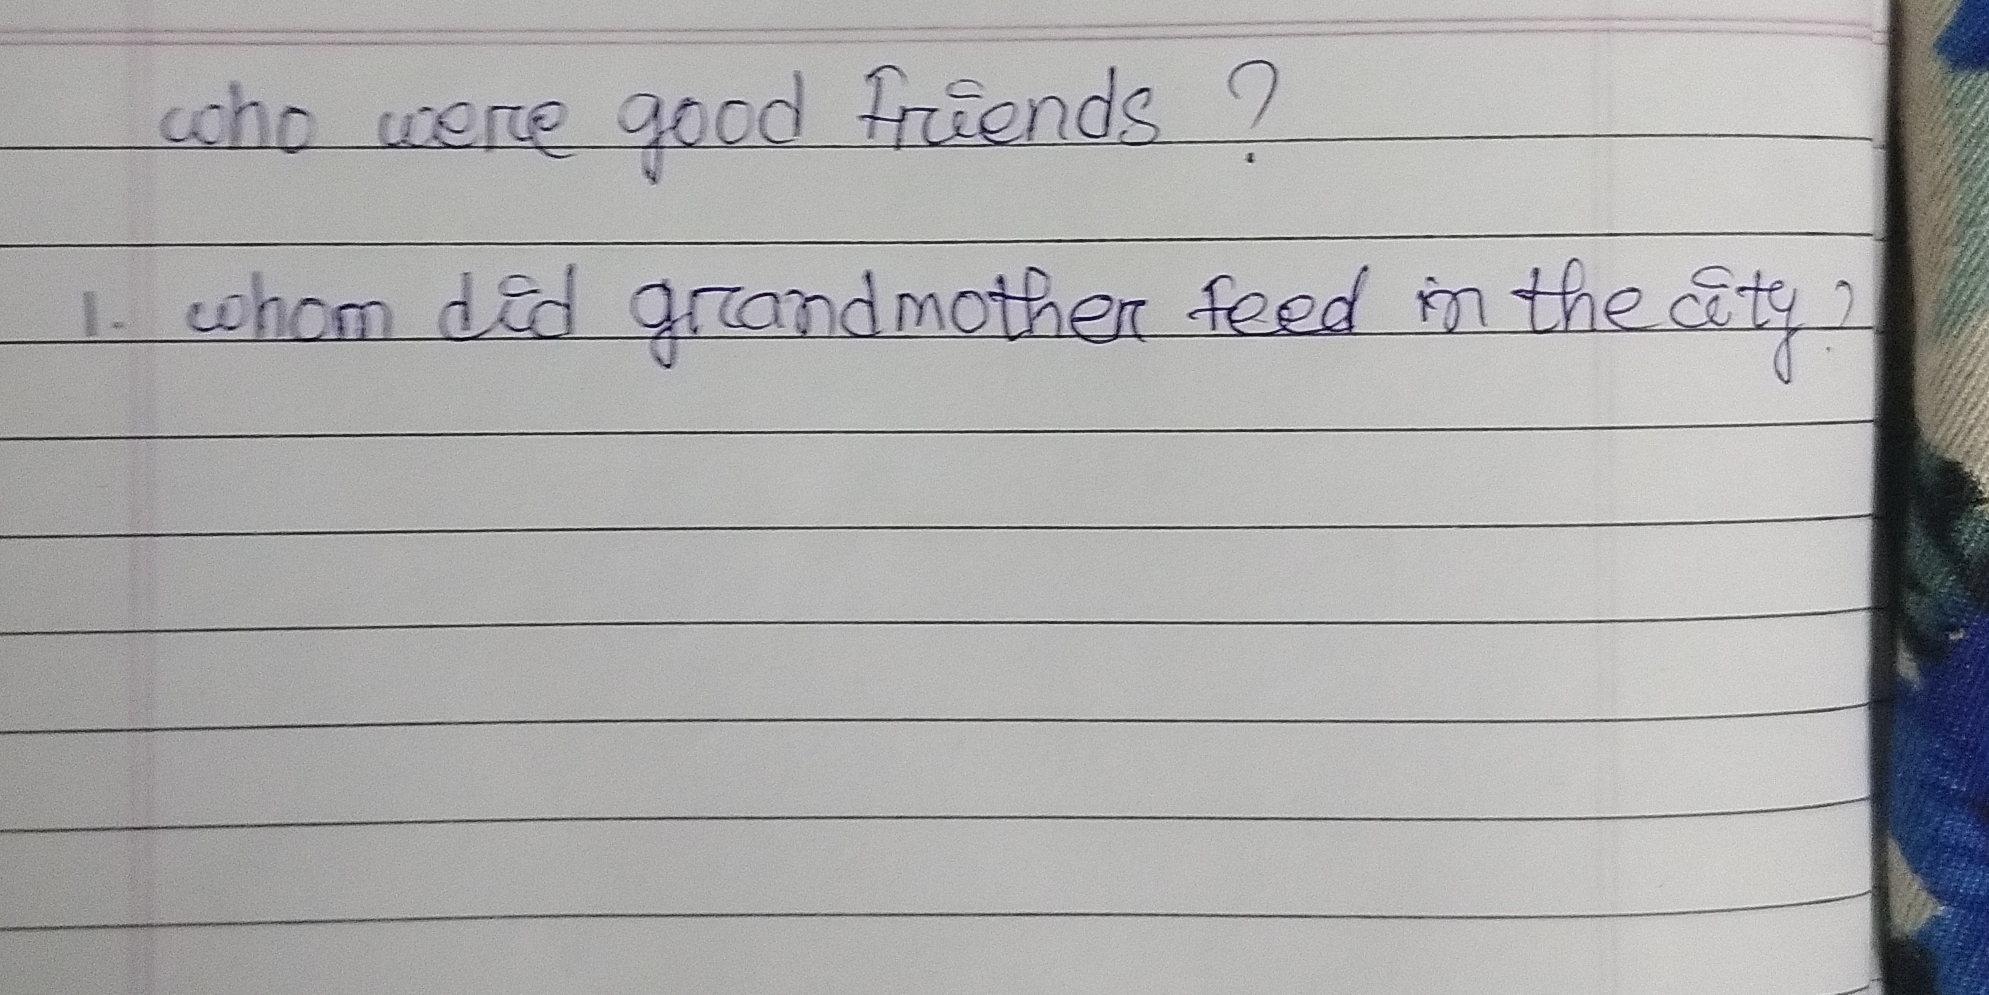 who were good friends ?
1. whom did grandmother feed in the city ?